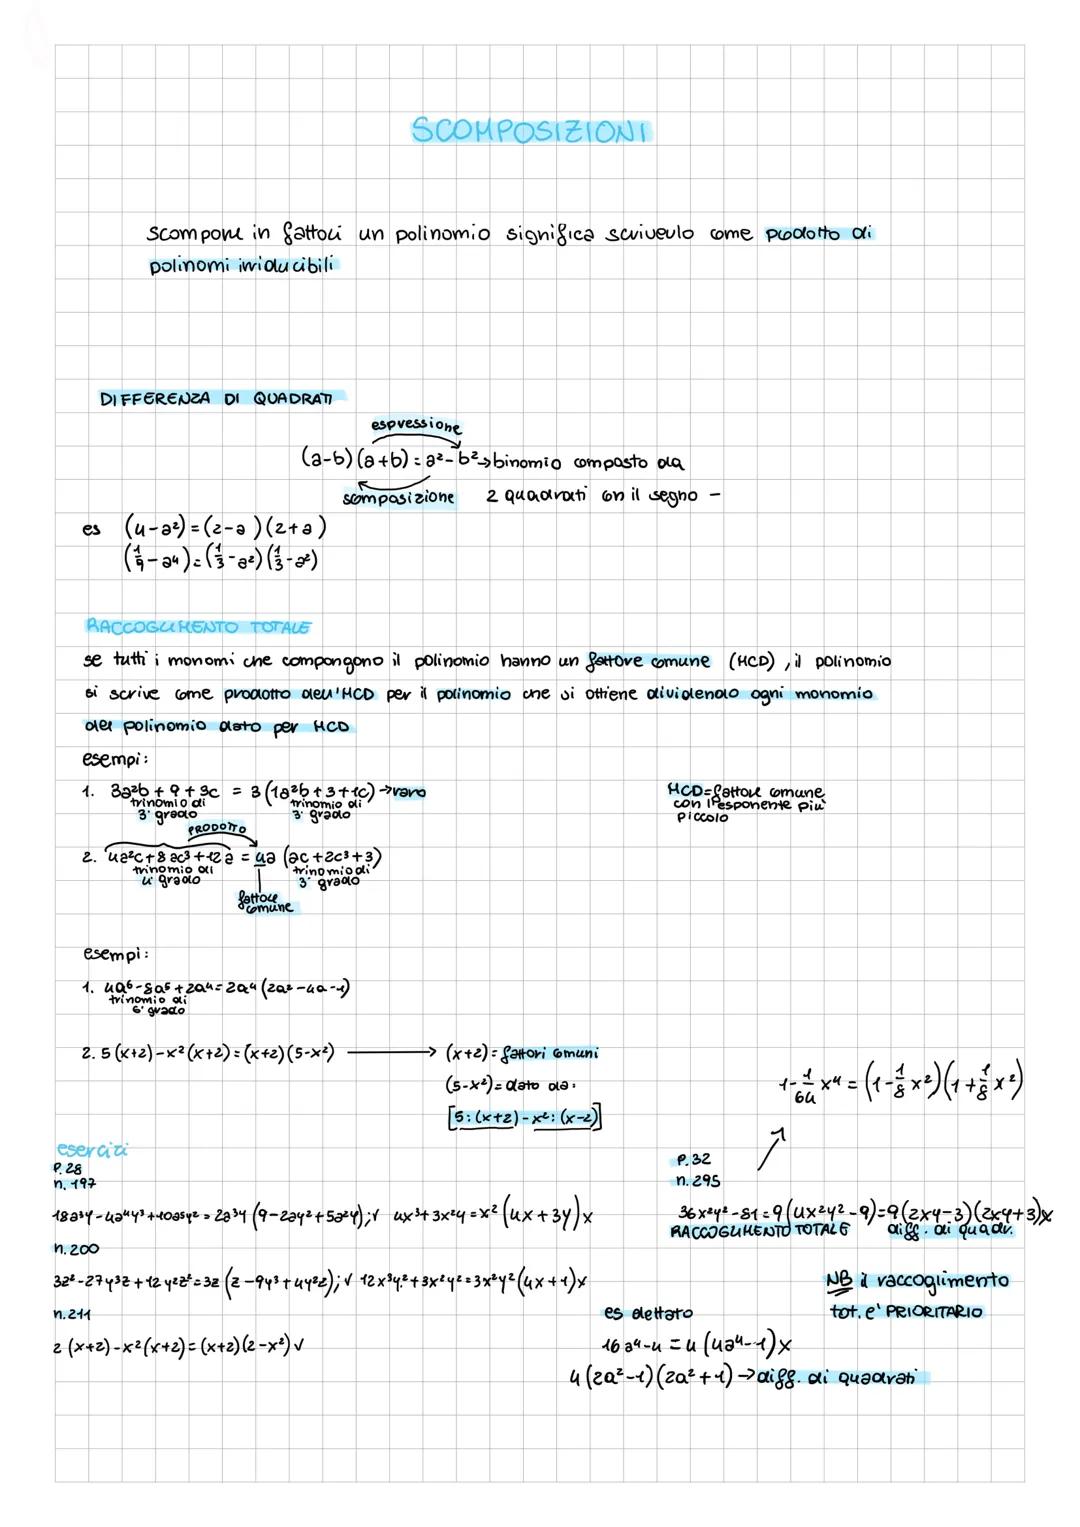 SCOMPOSIZIONI
scomporre in fattori un polinomio significa scriverlo come prodotto di
polinomi irriducibili
DIFFERENZA DI QUADRATI
espressione
(a-b)(a+b) = a²-b² → binomio composto da
scomposizione 2 quadrati con il segno -
es (4-a²)=(2-a)(2+a)
(1/9-a⁴)=(1/3-a²)(1/3-a²)
RACCOGLIMENTO TOTALE
se tutti i monomi che compongono il polinomio hanno un fattore comune (MCD), il polinomio
si scrive come prodotto dell'MCD per il polinomio che si ottiene dividendo ogni monomio
del polinomio dato per MCD
esempi:
1. 3a²b + 9 + 3c = 3 (1a²b + 3 + 1c) → raro
trinomio di 3° grado trinomio di 3° grado
MCD=fattore comune
con l'esponente più
piccolo
PRODOTTO
2. 4a²c + 8ac³ + 12a = 4a (ac + 2c³ + 3)
trinomio di 4° grado trinomio di 3° grado
fattore
comune
esempi:
1. 4a⁶-8a⁵+2a⁴=2a⁴(2a²-4a-1)
trinomio di
6° grado
2. 5(x+2)-x²(x+2)=(x+2)(5-x²) → (x+2)= fattori comuni
(5-x²)= dato da:
[5:(x+2)-x²:(x-2)]
1-1/64 x⁴ = (1-1/8 x²)(1+1/8 x²)
esercizi
P. 28
n. 197
18a³y-4a⁴y³+10a⁵y²=2a³y(9-2ay²+5a²y);√ 4x³+3x²y=x²(4x+3y)x
n. 200
3z²-27y³z+12y²z²=3z(z-9y³+4y²z);√ 12x³y²+3x²y²=3x²y²(4x+1)x
n. 211
2(x+2)-x²(x+2)=(x+2)(2-x²)√
P. 32
n. 295
36x²y²-81=9(4x²y²-9)=9(2xy-3)(2xy+3)x
RACCOGLIMENTO TOTALE diff. di quadr.
NB il raccoglimento
tot. e' PRIORITARIO
es dettato
16a⁴-4=4(4a⁴-1)x
4(2a²-1)(2a²+1) → diff. di quadrati